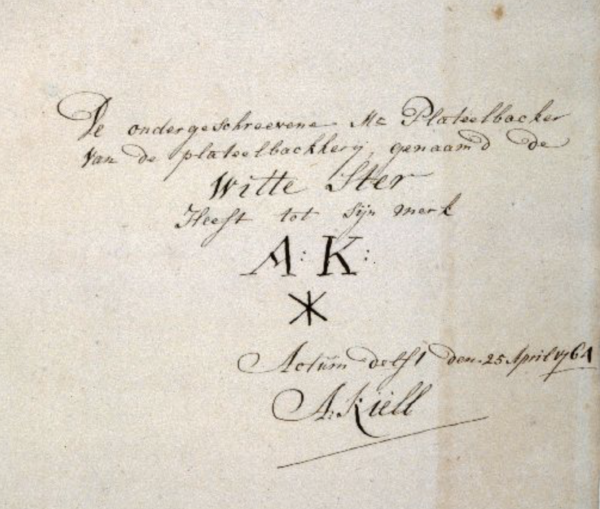 De ondergeschreevene Mr Plateelbacker
van de plateelbackkerij, genaamd de
Witte Ster
Heeft tot sijn merk
A: K:
Actum delft den 25 April 1764
A: Kiell